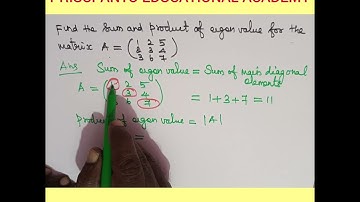 PRISUPANTO EDUCATIONAL ACADEMY
Find the Sum and product of eigen value for the
matrix A = (1 2 5
2 3 4
3 6 7)
Ans Sum of eigen value = Sum of main diagonal
elements
A = ( 2 5
3 4
6 7)
= 1+3+7 = 11
Product of eigen value = |A|
=